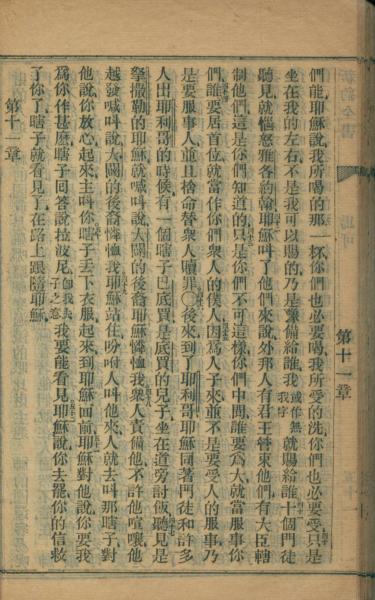 們能、耶穌說、我所喝的那一杯、你們也必要喝、我所受的洗、你們也必要受、只是
坐在我的左右、不是我可以賜的、乃是豫備給誰、我或作無我字就賜給誰、十個門徒
聽見、就惱怒雅各約翰、耶穌叫了他們來說、外邦人有君王管束他們、有大臣轄
制他們、這是你們知道的、只是你們不可這樣、你們中間、誰要為大、就當服事你
們、誰要居首位、就當作你們衆人的僕人、因為人子來、並不是要受人的服事、乃
是要服事人、並且捨命、替衆人贖罪、○後來到了耶利哥、耶穌同著門徒和許多
人、出耶利哥的時候、有一個瞎子、巴底買、是底買的兒子、坐在道旁討飯、聽見是
拏撒勒的耶穌、就喊叫說、大闢的後裔耶穌、憐恤我、衆人責備他、不許他喧嚷、他
越發喊叫說、大闢的後裔、憐恤我、耶穌站住、吩咐人叫他來、人就去叫那瞎子、對
他說、你放心、起來、主叫你、瞎子丟下衣服、起來到耶穌面前、耶穌對他說、你要我
為你作甚麼、瞎子回答說、拉波尼、即我夫子之意我要能看見、耶穌說、你去罷、你的信救
了你了、瞎子就看見了、在路上跟隨耶穌、
第十一章
第十一章